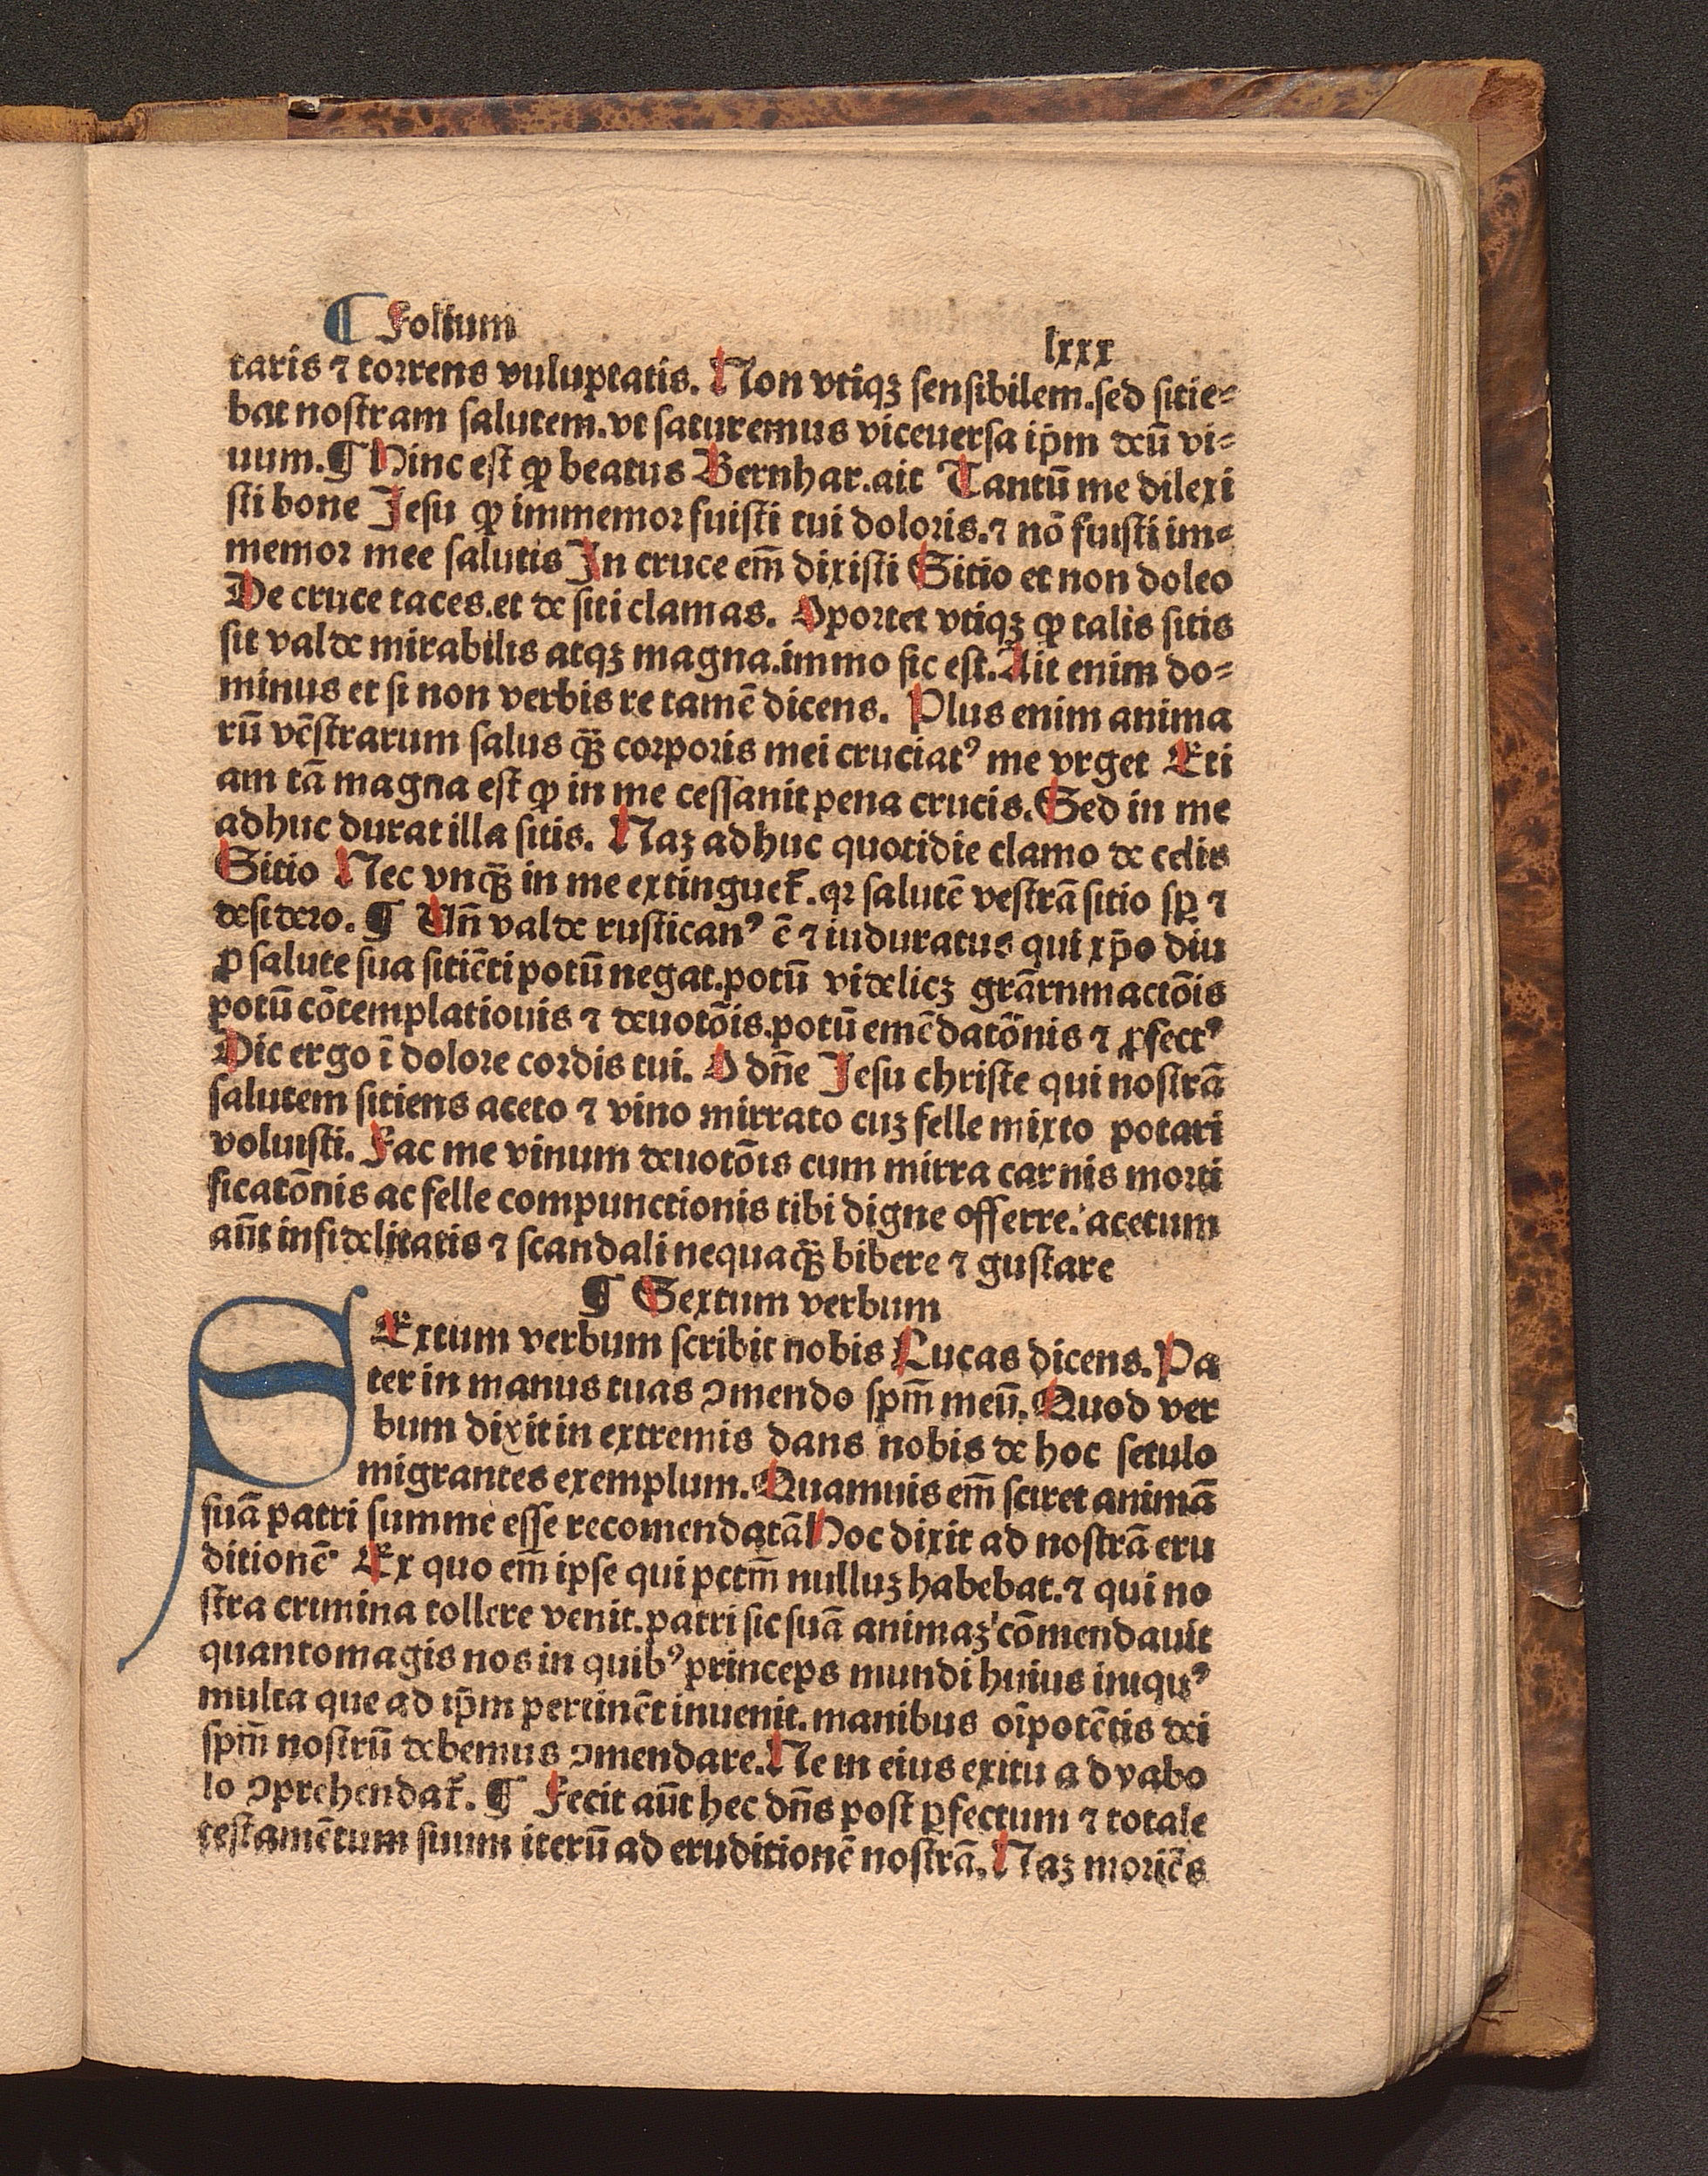 ¶ Folium lxxx
taris ⁊ torrens vuluptatis. Non vtiqꝫ senſibilem.ſed ſitie⸗
bat noſtram ſalutem.vt ſaturemus viceuerſa ip̄m deū vi⸗
uum.¶ Hinc eſt ꝙ beatus Bernhar.ait Tantū me dilexi
ſti bone Jeſu ꝙ immemor fuiſti tui doloris.⁊ nō fuiſti im⸗
memor mee ſalutis In cruce em̄ dixiſti Sitio et non doleo
De cruce taces.et de ſiti clamas. Oportet vtiqꝫ ꝙ talis ſitis
ſit valde mirabilis atqꝫ magna.immo ſic eſt.Ait enim do⸗
minus et ſi non verbis re tamē dicens. Plus enim anima
rū vēſtrarum ſalus q̄ꝫ corporis mei cruciatꝰ me vrget Eti
am tā magna eſt ꝙ in me ceſſanit pena crucis.Sed in me
adhuc durat illa ſitis. Naꝫ adhuc quotidie clamo de celis
Sitio Nec vnq̄ꝫ in me extinguet̄.qꝛ ſalutē veſtrā ſitio ſꝑ ⁊
deſidero.¶ Vn̄ valde ruſticanꝰ ē ⁊ iuduratus qui xp̄o diu
ꝓ ſalute ſua ſitiēti potū negat.potū videlicꝫ grārnmactōis
potū cōtemplatiouis ⁊ deuotōis.potū emēdatōnis ⁊ ꝓfectꝰ
Dic ergo ī dolore cordis tui. O dn̄e Jeſu chriſte qui noſtrā
ſalutem ſitiens aceto ⁊ vino mirrato cuꝫ felle mixto potari
voluiſti. Fac me vinum deuotōis cum mirra carnis morti
ficatōnis ac felle compunctionis tibi digne offerre. acetum
aūt infidelitatis ⁊ ſcandali nequaq̄ꝫ bibere ⁊ guſtare
¶ Sextum verbum
SExtum verbum ſcribit nobis Lucas dicens. Pa
ter in manus tuas ꝯmendo ſpm̄ meū. Quod ver
bum dixit in extremis dans nobis de hoc ſetulo
migrantes exemplum. Quamuis em̄ ſciret animā
ſuā patri ſumme eſſe recomendatā Hoc dixit ad noſtrā eru
ditionē Ex quo em̄ ipſe qui pctm̄ nulluꝫ habebat.⁊ qui no
ſtra crimina tollere venit.patri ſic ſuā animaꝫ cōmendauit
quantomagis nos in quibꝰ princeps mundi huius iniquꝰ
multa que ad ip̄m pertinēt inuenit.manibus oīpotētis dei
ſpm̄ noſtrū debemus ꝯmendare. Ne in eius exitu a dyabo
lo ꝯprehendat̄.¶ Fecit aūt hec dn̄s poſt ꝑfectum ⁊ totale
teſtamētum ſuum iterū ad eruditionē noſtrā. Naꝫ moriēs